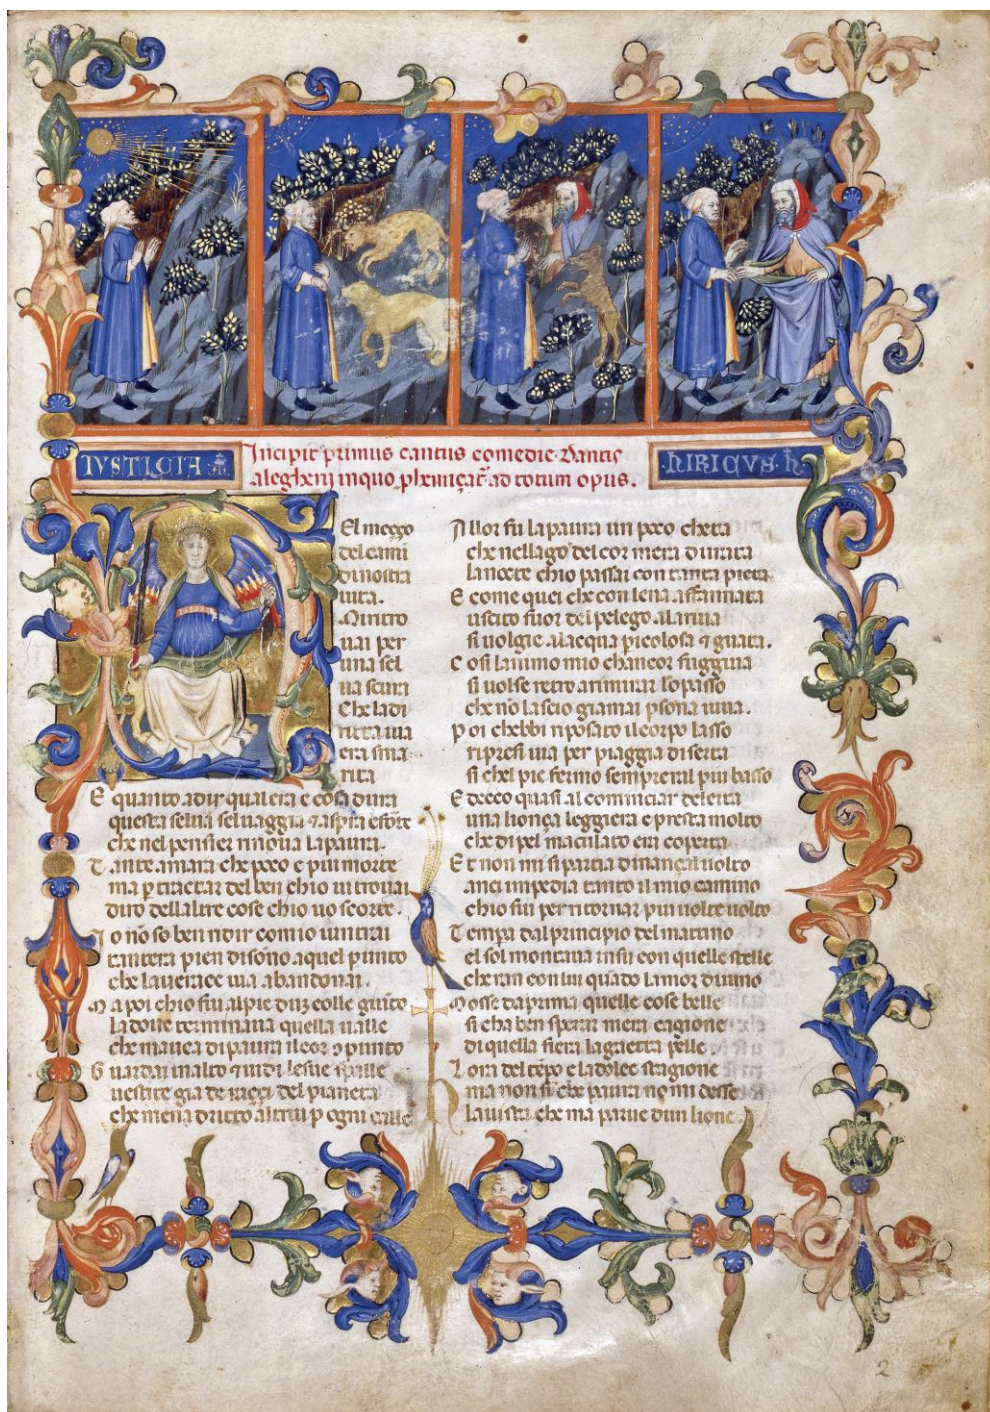 IUSTICIA
Incipit primus cantus comedie. Dantis
alegherij in quo prhemiçat̄ ad totum opus.
HIRICUS.
El meço
del cami
di nostra
uita.
Mi ritro
uai per
una sel
ua scura
Che la di
ritta uia
era sma
rita
E quanto a dir qual era e cosa dura
questa selua seluaggia ⁊ aspra e forte
che nel pensier rinoua la paura.
Tante amara che poco e piu morte
ma p tractar del ben chio ui trouai
diro dellaltre cose chio uo scorte.
Io nō so ben ridir comio uintrai
tantera pien di sōno a quel punto
che lauerace uia abandonai.
Ma poi chio fui al pie duȝ colle giūto
la doue terminaua quella ualle
che mauea di paura il cor ꝯpunto
Guardai in alto ⁊ uidi le sue spalle
uestite gia de raggi del pianeta
che mena dritto altrui p ogni calle
Allor fu la paura un poco cheta
che nel lago del cor mera durata
la nocte chio passai con tanta pieta
E come quei che con lena affannata
uscito fuor del pelego a la riua
si uolgie a lacqua picolosa ⁊ guata.
Cosi lanimo mio chancor fuggiua
si uolse retro a rimirar lo passo
che nō lascio giamai psona uiua.
Poi chebbi riposato il corpo lasso
ripresi uia per piaggia diserta
si chel pie fermo sempreral piu basso
Ed ecco quasi al cominciar de lerta
una lionça leggiera e presta molto
che di pel maculato era coperta
Et non mi si partia dinançal uolto
anci impedia tanto il mio camino
chio fui per ritornar piu uolte uolto
Tempera dal principio del mattino
el sol montaua insu con quelle stelle
cheran con lui quādo lamor diuino
Mosse da prima quelle cose belle
si cha ben sperar mera cagione
di quella fiera la gaietta pelle.
Lora del tēpo e la dolce stagione
ma non si che paura nō mi desse
la uista che ma parue dun lione.
2